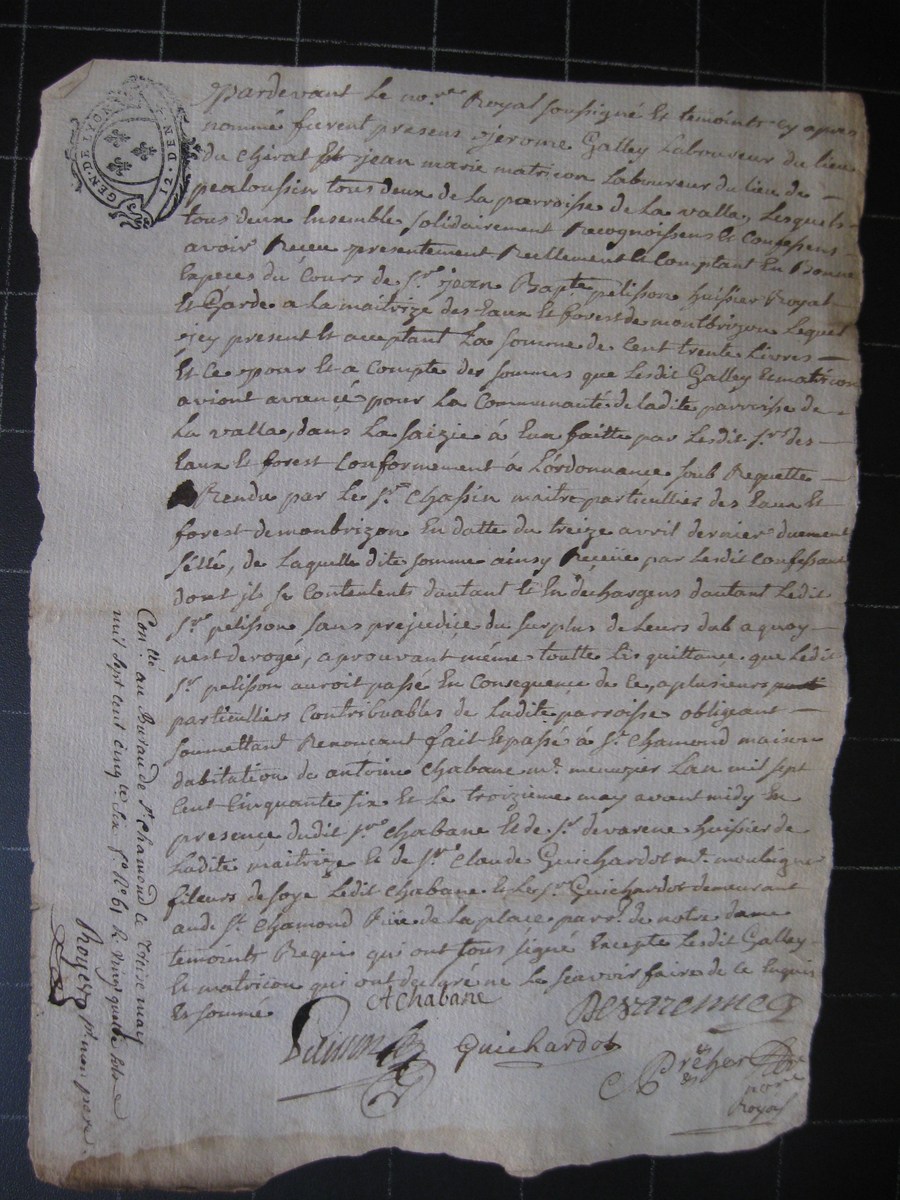 GEN·DE LYON
12 DEN
pardevant Le no.re Royal soussigné Et temoints cy apres
nommé furent presens jerome Galley Laboureur du lieu
du chirat Et jean marie matricon Laboureur du lieu de
pealoussin tous deux de La parroisse de La valla, Lesquels
tous deux Ensemble solidairement Recognoissens Et Confessens
avoir Receu presentement Reellement Et Comptant En Bonne
Especes du Cours de s.r jean Bapt.e pelisson huissier Royal
Et Garde a La maitrize des Eaux Et forest de montbrizon Lequel
jcy present Et acceptant La somme de Cent trente Livres
Et Ce pour Et a Compte des sommes que Lesdit Galley Et matricon
aviont avancé pour La Communauté de ladite parroisse de
La valla, dans La saizie à Eux faitte par Lesdit s.rs des
Eaux Et forest Conformement à L'ordonnance soub Requette
Rendu par Le s.r Chassin maitre particullier des Eaux Et
forest de monbrizon En datte du treize avril dernier duement
séllé, de Laquelle dite somme ainsy Receüe par Lesdit Confessant
dont ils se Contentents dautant Et En dechargens dautant Ledit
s.r pelisson sans prejudice du surplus de Leurs dub a quoy
nest derogé, aprouvant même toutte Les quittance que Ledit
s.r pelisson auroit passé En Consequence de Ce, a plusieurs
particulliers Contribuables de Ladite parroisse obligeant
soumettant Renoncant fait Et passé à s.t Chamond maison
dabitation de antoine Chabane m.e menuzier Lan mil sept
Cent Cinquante six Et Le troizieme may avant midy En
presence dudit s.r Chabane Et de s.r devarene huissier de
Ladite maitrize Et de s.r Claude Guichardot m.e moulinier
fileurs de soye Ledit Chabane Et Le s.r Guichardot demeurant
aud. s.t Chamond Rüe de La place parr.e de notre dame
temoints Requis qui ont tous signé Excepté Lesdit Galley
Et matricon qui ont declaré ne Le scavoir faire de ce Enquis
Et sommé
AChabane
Devarenne
Guichardot
no.re
Royal
Con.llé au Bureau de s.t Chamond le treize may
mil sept cent cinq.te six f.o N.o 61 R. vingt quatre sols
Royer p.r mon pere